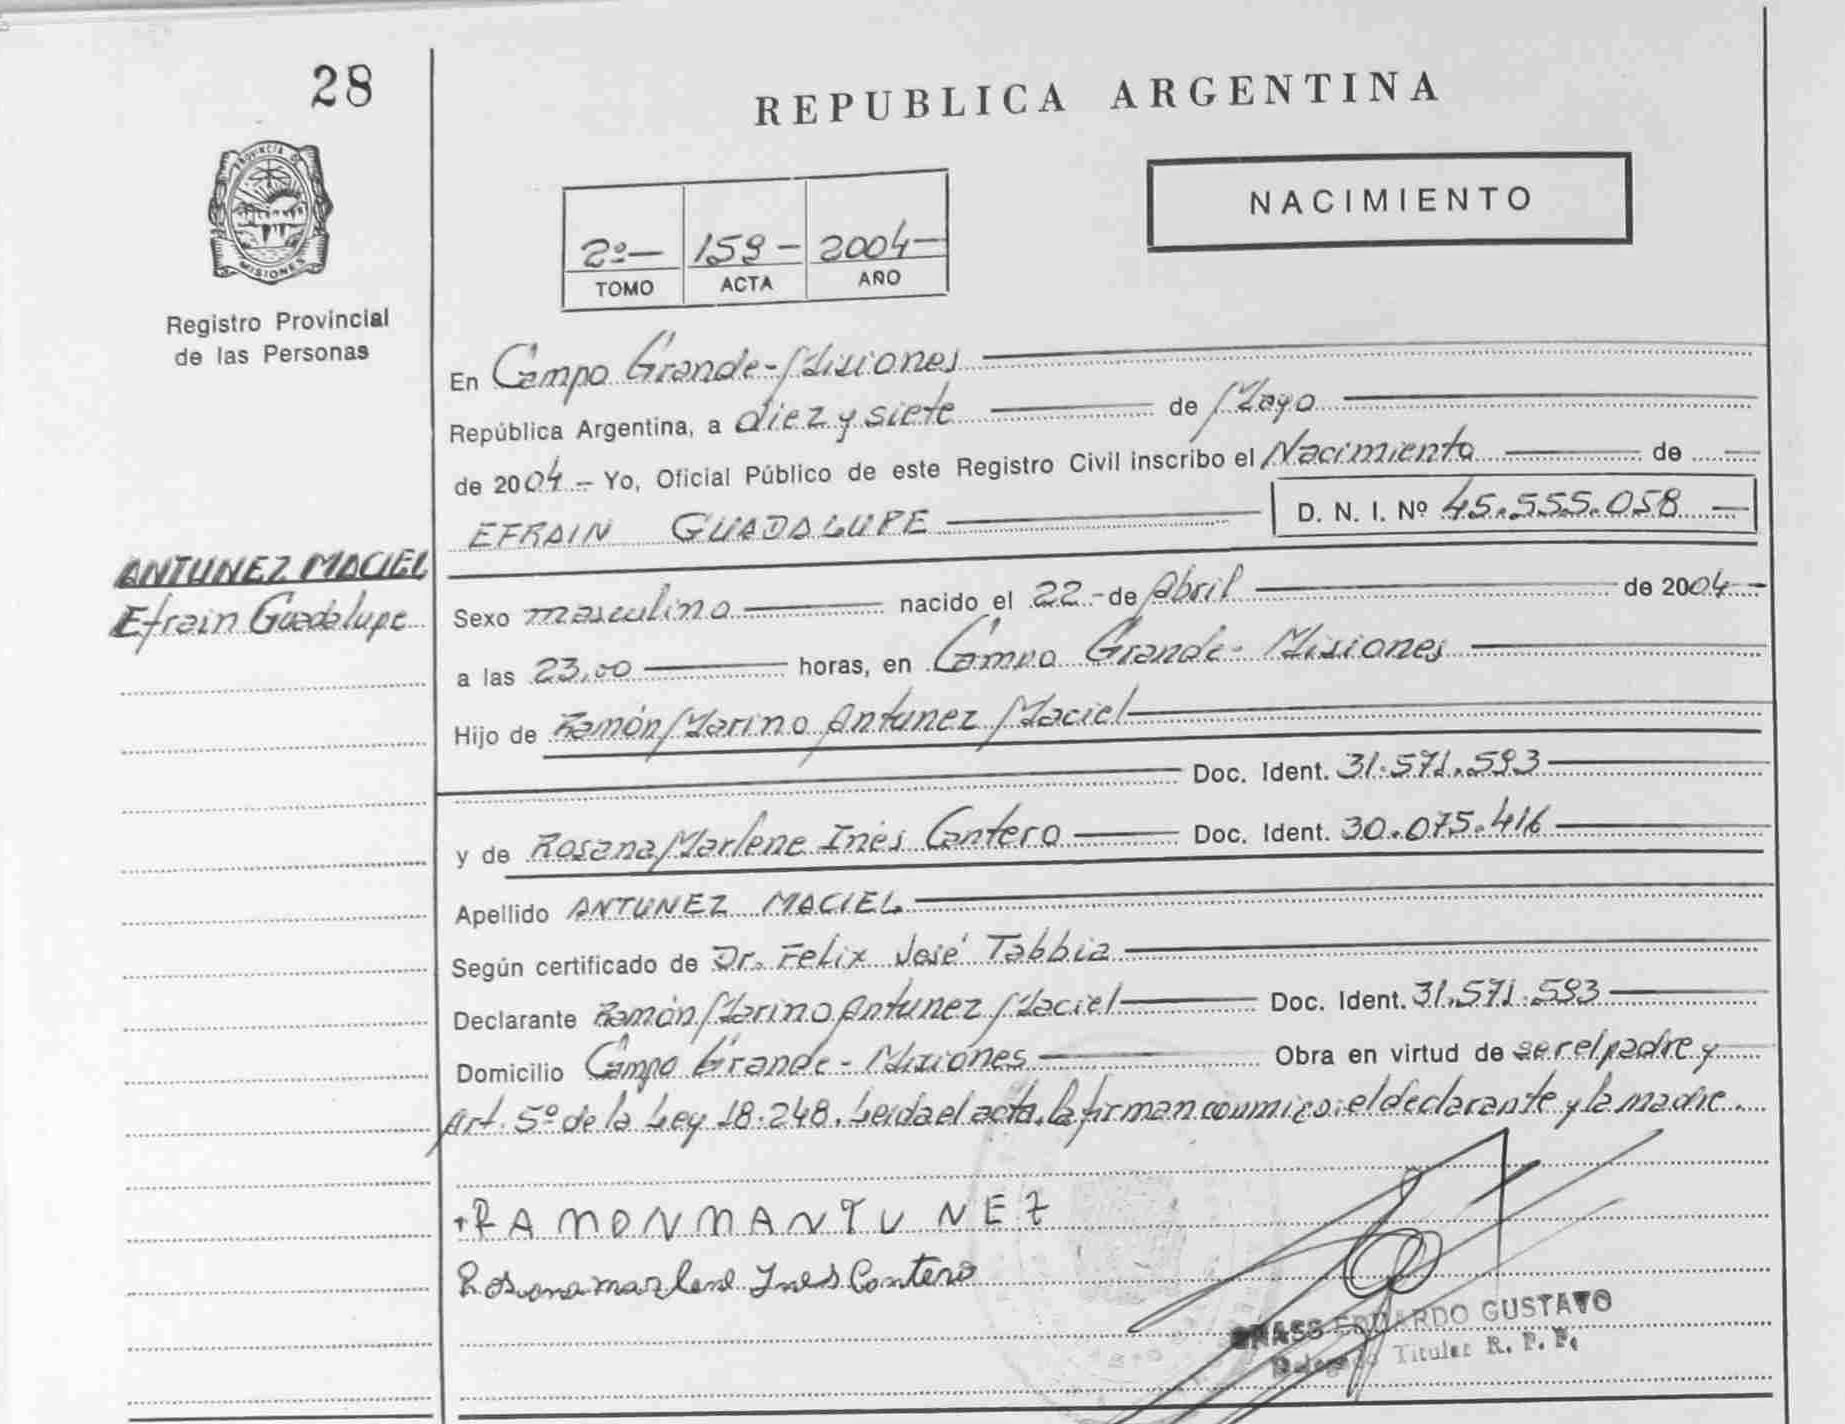 28
PROVINCIA DE
MISIONES
Registro Provincial
de las Personas
REPUBLICA ARGENTINA
NACIMIENTO
2º— 159 - 2004-
TOMO ACTA AÑO
En Campo Grande - Misiones
República Argentina, a diez y siete de Mayo
de 2004.- Yo, Oficial Público de este Registro Civil inscribo el Nacimiento de
EFRAIN GUADALUPE D. N. I. Nº 45.555.058
ANTUNEZ MACIEL
Efrain Guadalupe
Sexo masculino nacido el 22 - de Abril de 2004
a las 23,00 horas, en Campo Grande - Misiones
Hijo de Ramón Marino Antunez Maciel
Doc. Ident. 31.571.593
y de Rosana Marlene Inés Cantero Doc. Ident. 30.075.416
Apellido ANTUNEZ MACIEL
Según certificado de Dr. Felix José Tabbia
Declarante Ramón Marino Antunez Maciel Doc. Ident. 31.571.593
Domicilio Campo Grande - Misiones Obra en virtud de ser el padre y
Art. 5º de la Ley 18.248. Leida el acta, la firman conmigo: el declarante y la madre.
RAMON M ANTUNEZ
Rosana marlene Ines Cantero
EDUARDO GUSTAVO
Delegado Titular R. P. P.